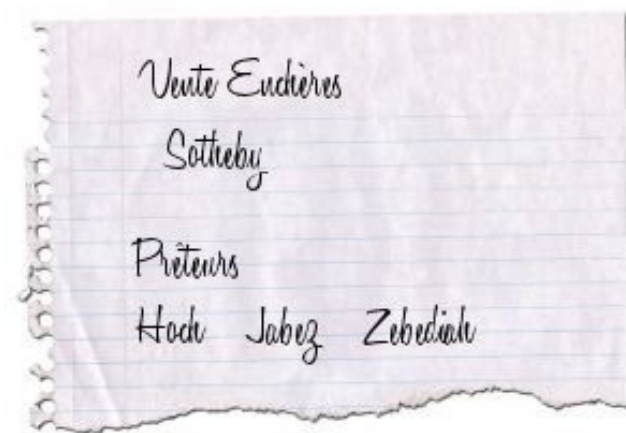 Vente Enchères
Sotheby
Prêteurs
Hoch Jabez Zebediah